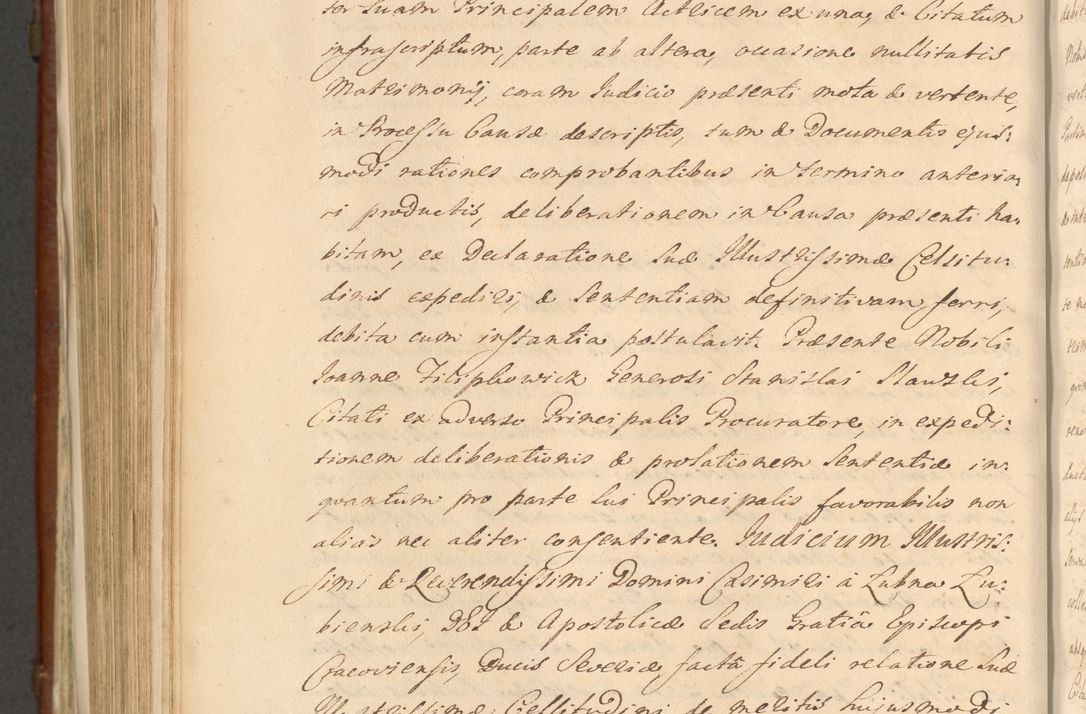 ter Suam Principalem Actricem ex una, & Citatum
infrascriptum, parte ab altera, occasione nullitatis
Matrimonij, coram Judicio præsenti mota & vertente,
in Processu Causæ descriptis, tum & Documentis ejus:
modi rationes comprobantibus in termino anterio:
ri productis, deliberationem in Causa præsenti ha:
bitam, ex Declaratione Suæ Illustrissimæ Celsitu:
dinis expediri, & Sententiam definitivam ferri,
debita cum instantia postulavit. Præsente Nobili
Joanne Filiphowick Generosi Stanislai
Citati ex adverso Principalis Procuratore, in expedi:
tionem deliberationis & prolationem Sententiæ in:
quantum pro parte sui Principalis favorabilis non
alias nec aliter consentiente. Judicium Illustris:
simi & Reverendissimi Domini Casimiri à Łubna Łu:
bienski, DEI & Apostolicæ Sedis Gratiâ Episcopi
Cracoviensis, Ducis Severiæ, factâ fideli relatione Suæ
Illustrissimæ Cellsitudini de meritis hujusmodi